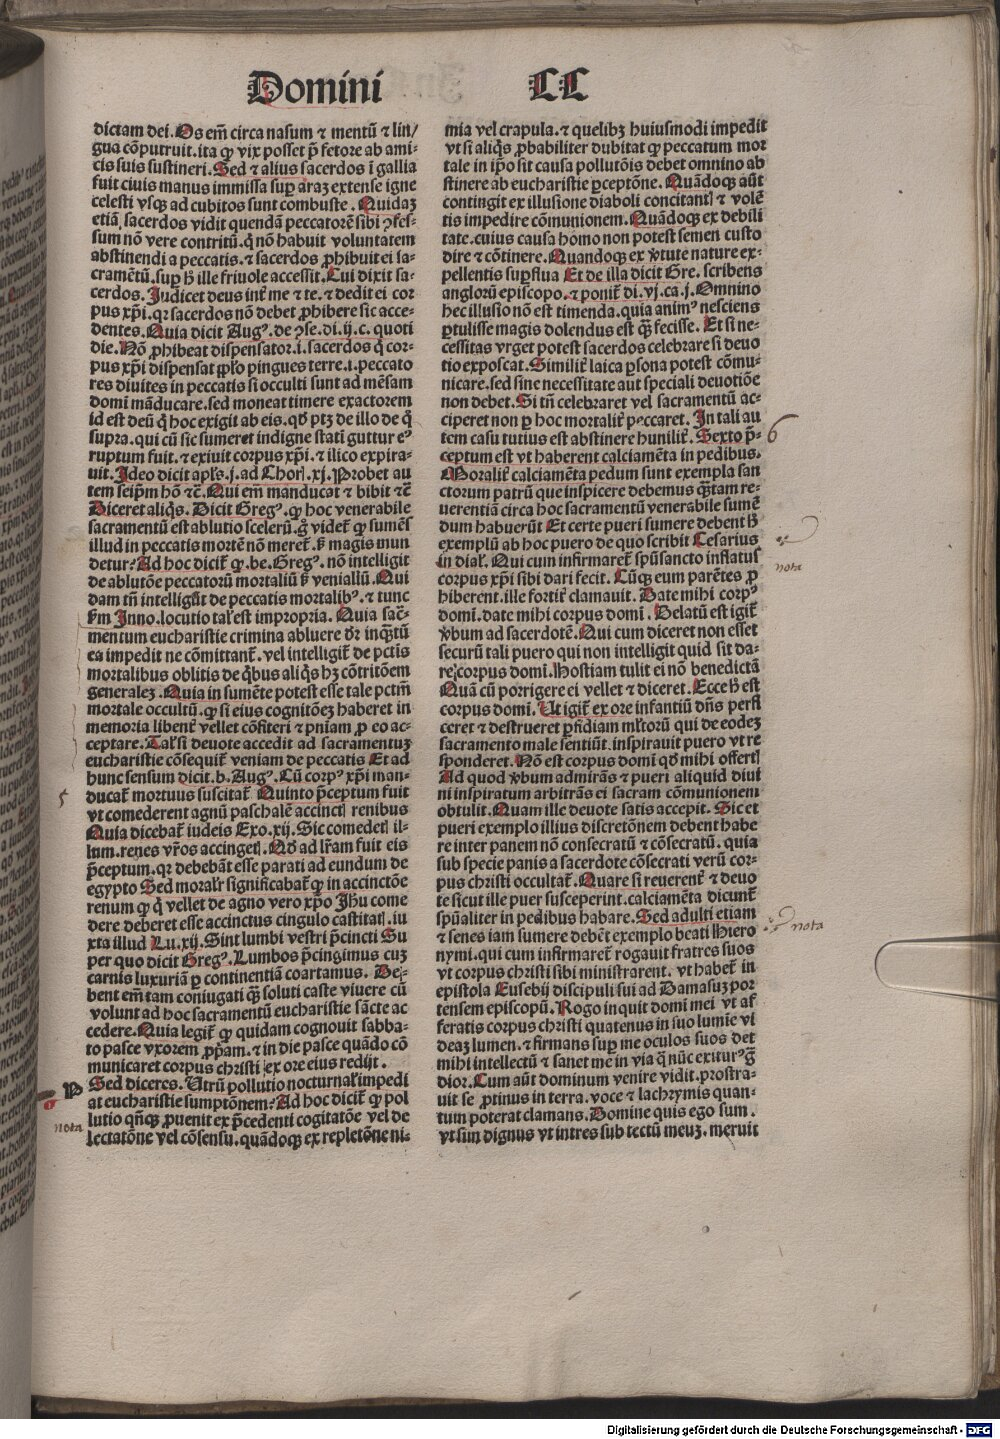 Domini LL
dictam dei. Os em̄ circa nasum ⁊ mentū ⁊ lin/
gua cōputruit. ita ꝙ vix posset p̄ fetore ab ami-
cis suis sustineri. Sed ⁊ alius sacerdos ī gallia
fuit cuius manus immissa suꝑ araꝫ extense igne
celesti vsqꝫ ad cubitos sunt combuste. Quidaꝫ
etiā sacerdos vidit quendā peccatorē sibi ꝯfes-
sum nō vere contritū. q̇ nō habuit voluntatem
abstinendi a peccatis. ⁊ sacerdos ꝓhibuit ei sa-
cramētū. suꝑ hͦ ille friuole accessit. Cui dixit sa-
cerdos. Judicet deus int̄ me ⁊ te. ⁊ dedit ei cor
pus xp̄i. qꝛ sacerdos nō debet ꝓhibere sic acce-
dentes. Quia dicit Augꝰ. de ꝯse. di. ij. c. quoti
die. Nō ꝓhibeat dispensator .i. sacerdos q̇ cor-
pus xp̄i dispensat pp̄lo pingues terre .i. peccato
res diuites in peccatis si occulti sunt ad mēsam
domī māducare. sed moneat timere exactorem
id est deū q̇ hoc exigit ab eis. qd̓ ptꝫ de illo de q̊
supra. qui cū sic sumeret indigne statī guttur eꝰ
ruptum fuit. ⁊ exiuit corpus xp̄i. ⁊ ilico expira-
uit. Ideo dicit apl̓s .j. ad Choꝝ. xj. Probet au
tem seip̄m hō ⁊c̄. Qui em̄ manducat ⁊ bibit ⁊c̄
Diceret aliq̇s. Dicit Gregꝰ. ꝙ hoc venerabile
sacramentū est ablutio scelerū. g̊ videt̄ ꝙ sumēs
illud in peccatis mortē nō meret̄. sꝫ magis mun
detur? Ad hoc dicit̄ ꝙ. be. Gregꝰ. nō intelligit
de ablutōe peccatorū mortaliū sꝫ venialiū. Qui
dam tn̄ intelligūt de peccatis mortalibꝰ. ⁊ tunc
s̄m Inno. locutio tal̓ est impropria. Quia sac̄-
mentum eucharistie crimina abluere dr̄ inq̄tū
ea impedit ne cōmittant̄. vel intelligit̄ de pctis
mortalibus oblitis de q̇bus aliq̇s hꝫ cōtritōem
generaleꝫ. Quia in sumēte potest esse tale pctm̄
mortale occultū. ꝙ si eius cognitōeꝫ haberet in
memoria libent̄ vellet cōfiteri ⁊ pniam ꝓ eo ac-
ceptare. Tal̓ si deuote accedit ad sacramentuꝫ
eucharistie cōsequit̄ veniam de peccatis Et ad
hunc sensum dicit. b. Augꝰ. Cū corpꝰ xp̄i man-
ducat̄ mortuus suscitat̄ Quinto p̄ceptum fuit
vt comederent agnū paschalē accincti renibus
Quia dicebat̄ iudeis Exo. xij. Sic comedetis il-
lum. renes vr̄os accingetis. Qd̓ ad lr̄am fuit eis
p̄ceptum. qꝛ debebāt esse parati ad eundum de
egypto Sed moral̓r significabat̄ ꝙ in accinctōe
renum ꝙ q̇ vellet de agno vero xp̄o Jhū come
dere deberet esse accinctus cingulo castitatis. iu
xta illud Lu. xij. Sint lumbi vestri p̄cincti Su
per quo dicit Gregꝰ. Lumbos p̄cingimus cuꝫ
carnis luxuriā ꝑ continentiā coartamus. De-
bent em̄ tam coniugati q̄ꝫ soluti caste viuere cū
volunt ad hoc sacramentū eucharistie sācte ac
cedere. Quia legit̄ ꝙ quidam cognouit sabba-
to pasce vxorem ꝓp̄am. ⁊ in die pasce quādo cō
municaret corpus christi ex ore eius redijt.
Sed diceres. Vtrū pollutio nocturnal̓ impedi
at eucharistie sumptōnem? Ad hoc dicit̄ ꝙ pol
lutio qn̄qꝫ ꝓuenit ex p̄cedenti cogitatōe vel de
lectatōne vel cōsensu. quādoqꝫ ex repletōne ni-
mia vel crapula. ⁊ quelibꝫ huiusmodi impedit
vt si aliq̇s ꝓbabiliter dubitat ꝙ peccatum mor
tale in ip̄o sit causa pollutōis debet omnino ab
stinere ab eucharistie ꝑceptōne. Quādoqꝫ aūt
contingit ex illusione diaboli concitantis ⁊ volē
tis impedire cōmunionem. Quādoqꝫ ex debili
tate. cuius causa homo non potest semen custo
dire ⁊ cōtinere. Quandoqꝫ ex v̓tute nature ex-
pellentis suꝑflua Et de illa dicit Gre. scribens
anglorū episcopo. ⁊ ponit̄ di. vj. ca. j. Omnino
hec illusio nō est timenda. quia animꝰ nesciens
ꝑtulisse magis dolendus est q̄ꝫ fecisse. Et si ne-
cessitas vrget potest sacerdos celebrare si deuo
tio exposcat. Similit̄ laica ꝑsona potest cōmu-
nicare. sed sine necessitate aut speciali deuotiōe
non debet. Si tn̄ celebraret vel sacramentū ac-
ciperet non ꝑ hoc mortalit̄ peccaret. In tali au
tem casu tutius est abstinere humilit̄. Sexto p̄-
ceptum est vt haberent calciamēta in pedibus.
Moralit̄ calciamēta pedum sunt exempla san
ctorum patrū que inspicere debemus q̄tam re-
uerentiā circa hoc sacramentū venerabile sumē
dum habuerūt Et certe pueri sumere debent hͦ
exemplū ab hoc puero de quo scribit Cesarius
in dial̓. Qui cum infirmaret̄ spū sancto inflatus
corpus xp̄i sibi dari fecit. Cūqꝫ eum parētes ꝓ
hiberent. ille fortit̄ clamauit. Date mihi corpꝰ
domī. date mihi corpus domī. Delatū est igit̄
v̓bum ad sacerdotē. Qui cum diceret non esset
securū tali puero qui non intelligit quid sit da-
re corpus domī. Hostiam tulit ei nō benedictā
Quā cū porrigere ei vellet ⁊ diceret. Ecce hͦ est
corpus domī. Vt igit̄ ex ore infantiū dn̄s perfi
ceret ⁊ destrueret ꝑfidiam ml̓torū qui de eodeꝫ
sacramento male sentiūt. inspirauit puero vt re
sponderet. Nō est corpus domī qd̓ mihi offertis
Ad quod v̓bum admirās ⁊ pueri aliquid diui
ni inspiratum arbitrās ei sacram cōmunionem
obtulit. Quam ille deuote satis accepit. Sic et
pueri exemplo illius discretōnem debent habe
re inter panem nō consecratū ⁊ cōsecratū. quia
sub specie panis a sacerdote cōsecrati verū cor-
pus christi occultat̄. Quare si reuerent̄ ⁊ deuo
te sicut ille puer susceperint. calciamēta dicunt̄
spūaliter in pedibus habare. Sed adulti etiam
⁊ senes iam sumere debēt exemplo beati Hiero
nymi. qui cum infirmaret̄ rogauit fratres suos
vt corpus christi sibi ministrarent. vt habet̄ in
epistola Eusebij discipuli sui ad Damasuꝫ por
tensem episcopū. Rogo inquit domī mei vt af
feratis corpus christi quatenus in suo lumīe vi
deaꝫ lumen. ⁊ firmans suꝑ me oculos suos det
mihi intellectū ⁊ sanet me in via q̄ nūc exiturꝰ g̊
dior. Cum aūt dominum venire vidit. prostra-
uit se ꝓtinus in terra. voce ⁊ lachrymis quan-
tum poterat clamans. Domine quis ego sum.
vt sim dignus vt intres sub tectū meuꝫ. meruit
5
B
nota
6
nota
nota
Digitalisierung gefördert durch die Deutsche Forschungsgemeinschaft - DFG